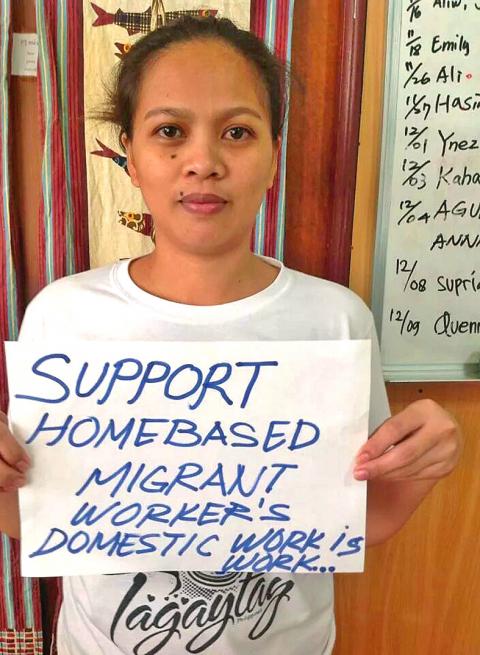 SUPPORT
HOMEBASED
MIGRANT
WORKER'S
DOMESTIC WORK IS
WORK...
Tagaytay
11/18 Emily
11/26 Ali
12/01 Ynez
12/03 Kaha
12/04 AGU
ANN
12/08 Supri
12/09 Quenn